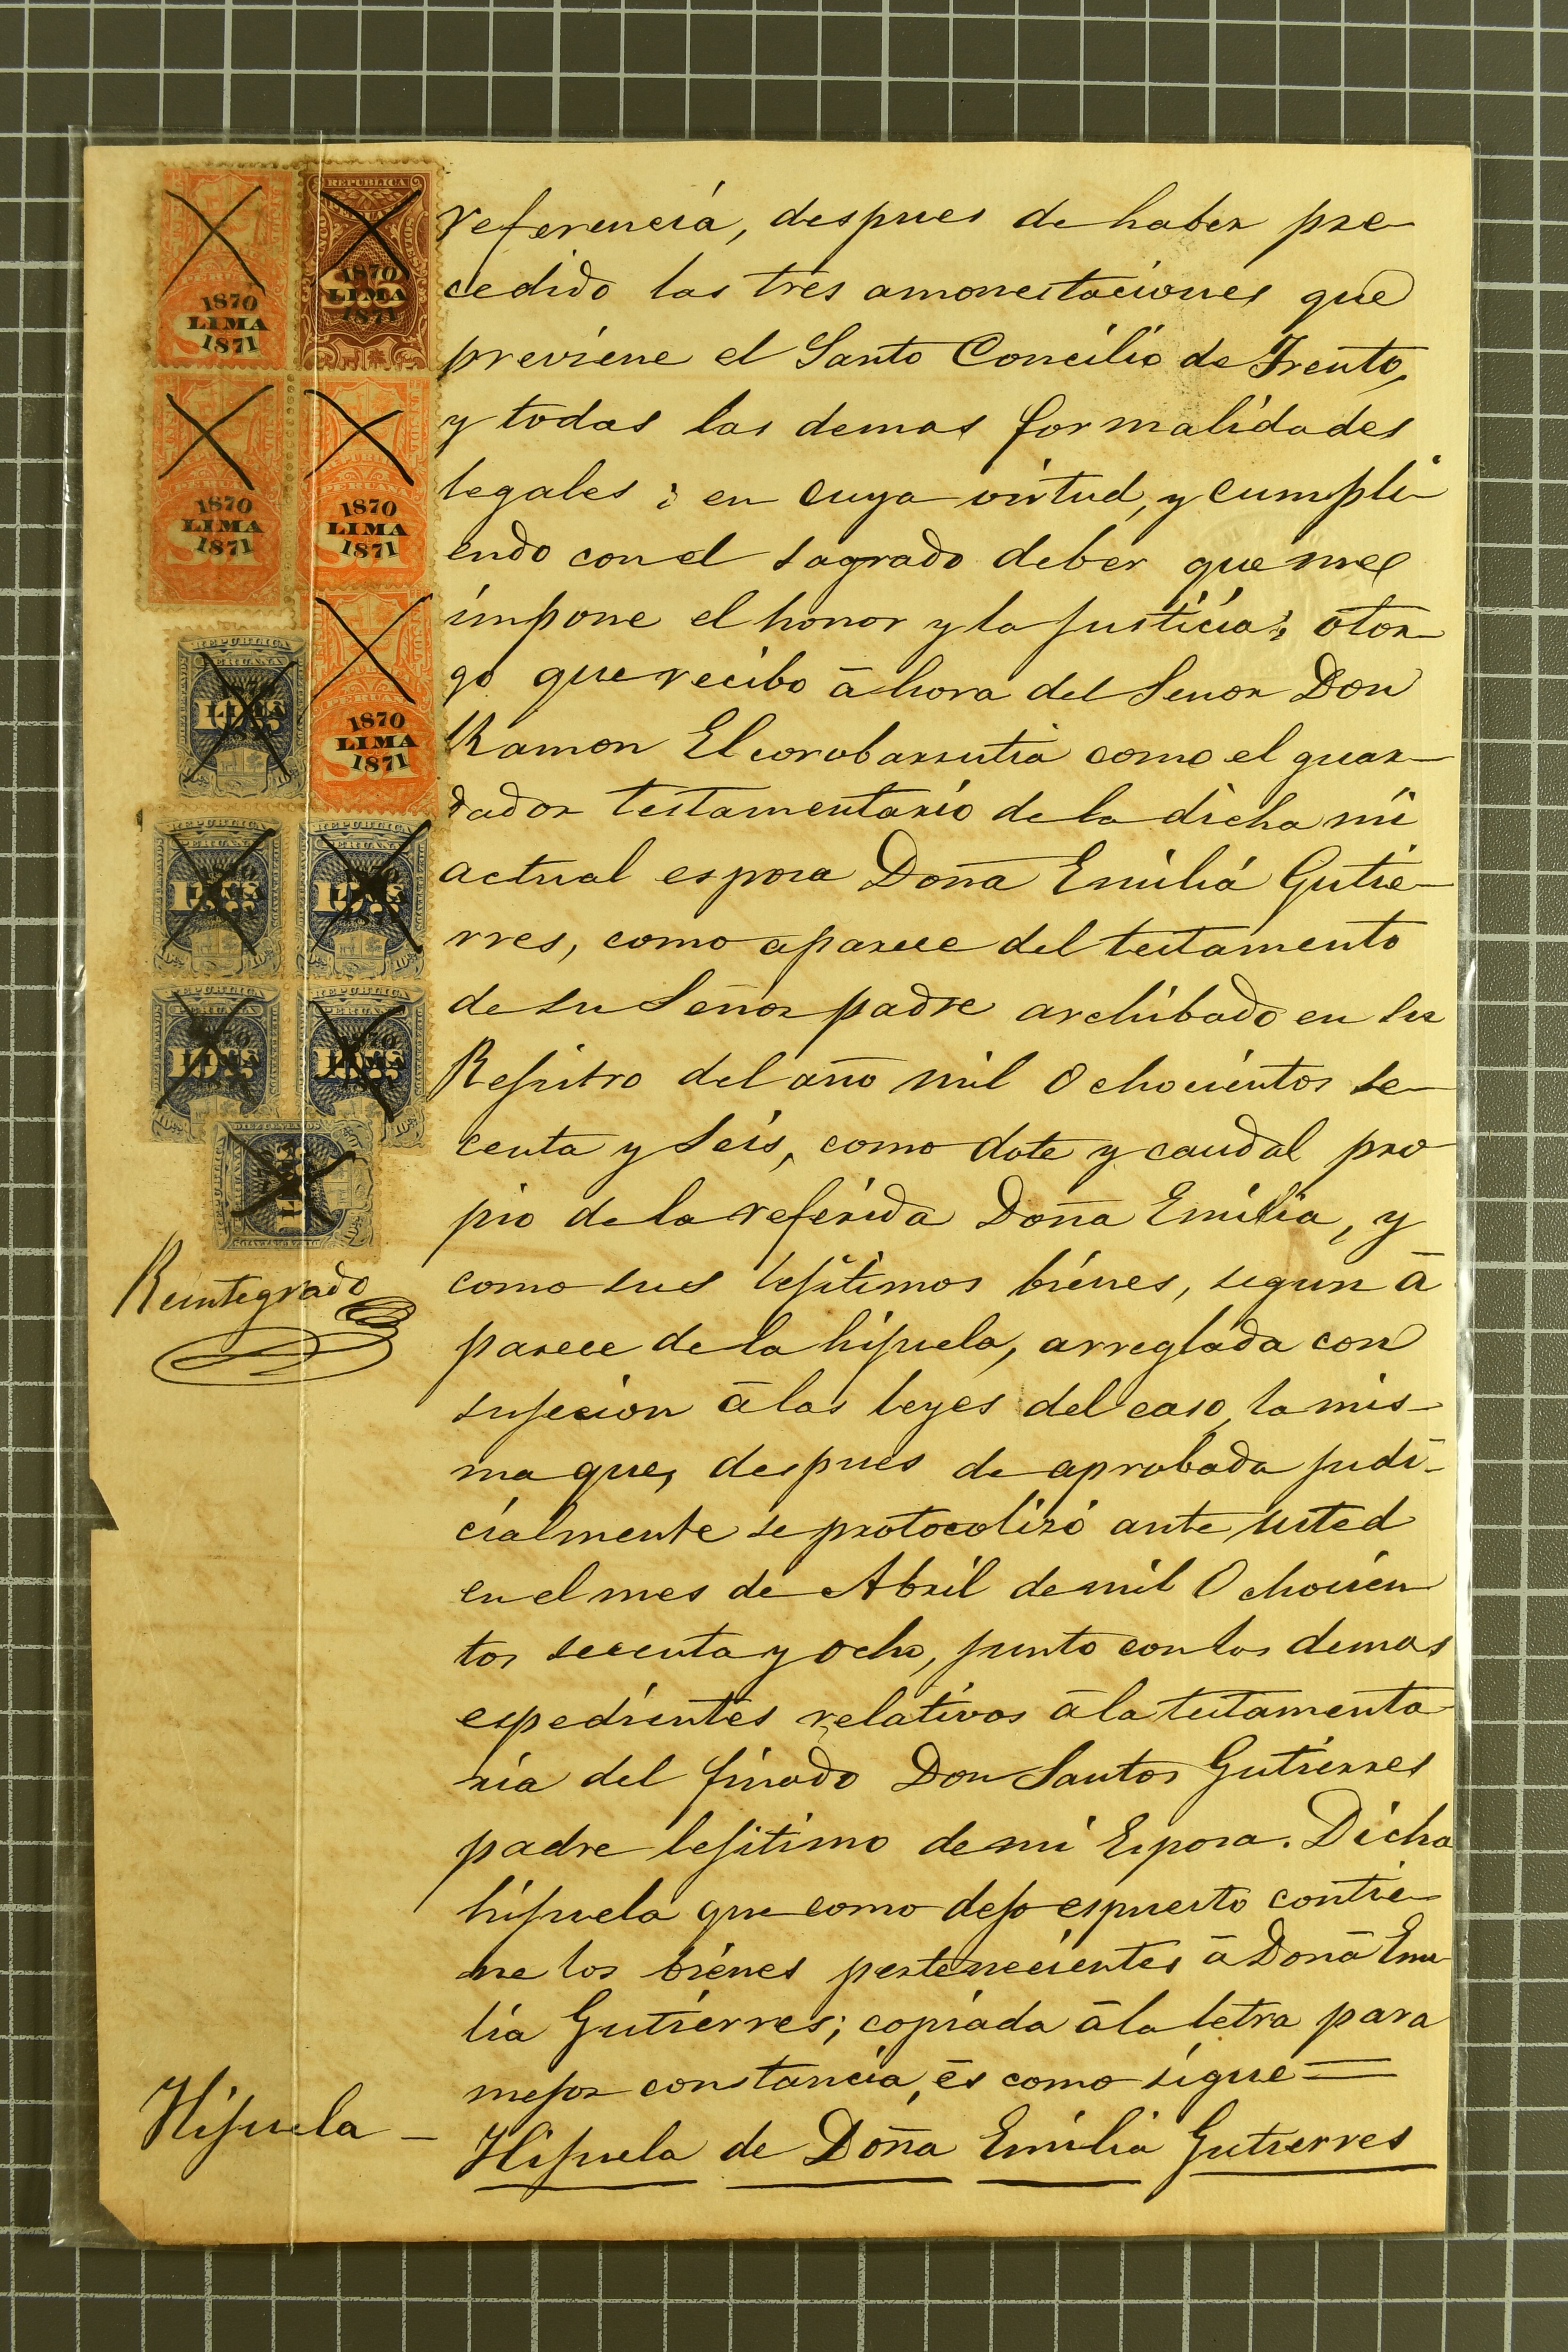 1870
LIMA
1871
REPUBLICA
1870
LIMA
1871
1870
LIMA
1871
PERUANA
1870
LIMA
1871
REPUBLICA
PERUANA
1870
LIMA
1871
REPUBLICA
REPUBLICA
REPUBLICA
REPUBLICA
PERUANA
Reintegrado
Hijuela —
referencia, despues de haber pre
cedido las tres amonestaciones que
previene el Santo Concilio de Trento,
y todas las demas formalidades
legales; en cuya virtud, y cumpli
endo con el sagrado deber que me
impone el honor y la justicia; otor
go que recibo á hora del Señor Don
Ramon Elcorobarrutia como el guar
dador testamentario de la dicha mi
actual esposa Doña Emilia Gutie
rres, como aparece del testamento
de su Señor padre archibado en su
Rejistro del año mil Ochocientos se
centa y Seis, como dote y caudal pro
pio de la referida Doña Emilia, y
como sus lejitimos bienes, segun á
parece de la hijuela, arreglada con
sujecion á las leyes del caso, la mis
ma que, despues de aprobada judi
cialmente se protocolizó ante usted
en el mes de Abril de mil Ochocien
tos secenta y ocho, junto con los demas
espedientes relativos á la testamenta
ria del finado Don Santos Gutierres
padre lejitimo de mi Esposa. Dicha
hijuela que como dejo espuesto contie
ne los bienes pertenecientes á Doña Emi
lia Gutierres; copiada á la letra para
mejor constancia, és como sigue =
Hijuela de Doña Emilia Gutierres